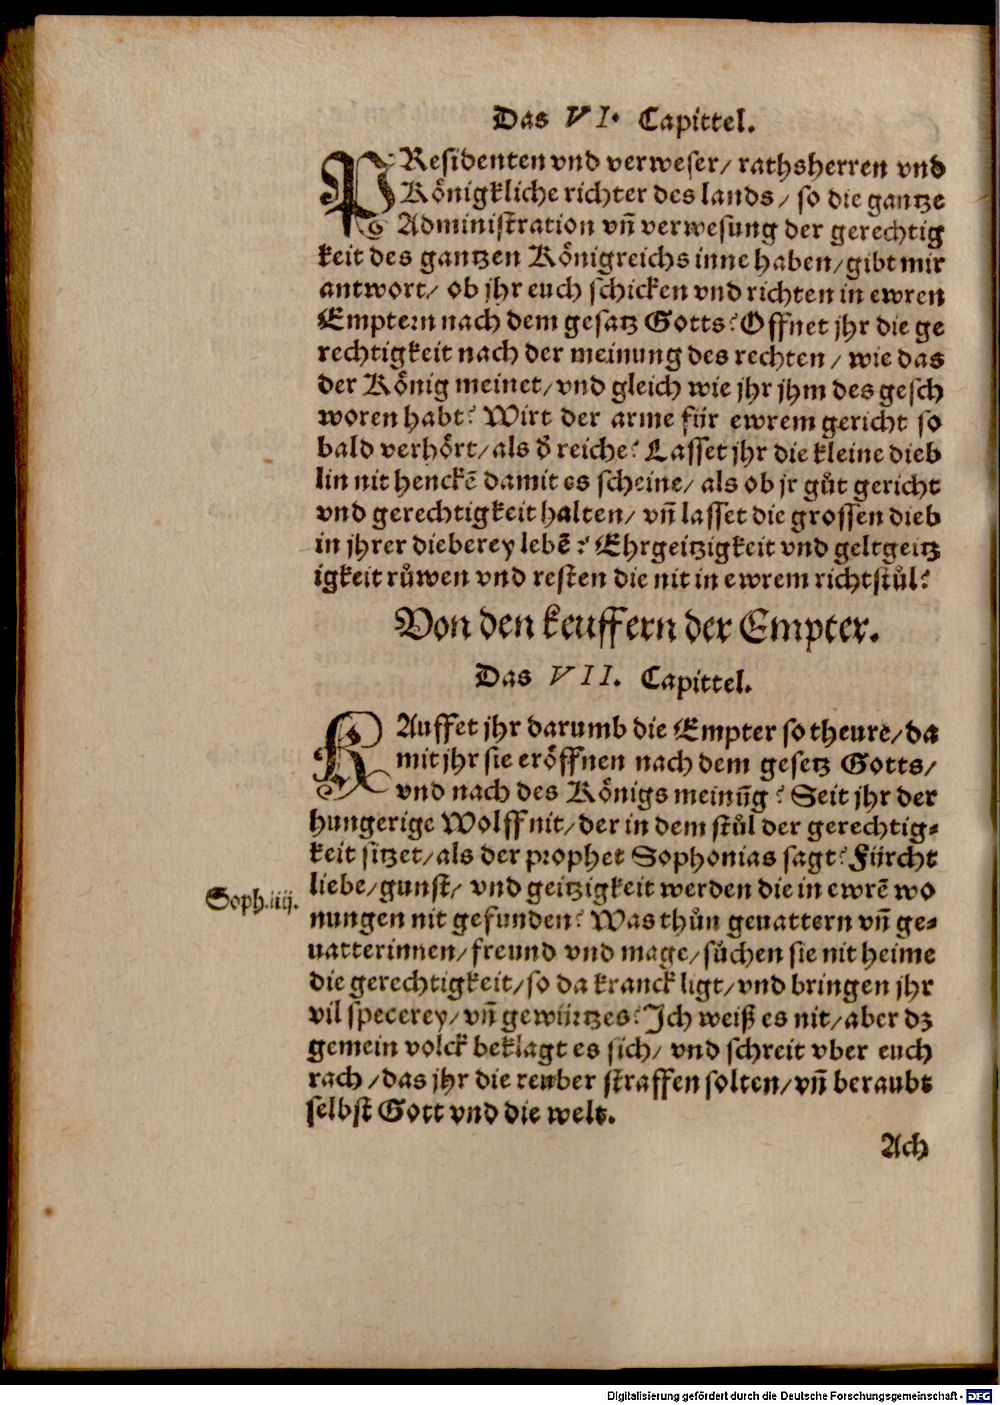 Das VI. Capittel.
PResidenten vnd verweser/ rathsherren vnd
Königkliche richter des lands/ so die gantze
Administration vñ verwesung der gerechtig
keit des gantzen Königreichs inne haben/gibt mir
antwort/ ob jhr euch schicken vnd richten in ewren
Emptern nach dem gesatz Gotts? Offnet jhr die ge
rechtigkeit nach der meinung des rechten/ wie das
der König meinet/vnd gleich wie jhr jhm des gesch
woren habt? Wirt der arme für ewrem gericht so
bald verhört/als ð reiche? Lasset jhr die kleine dieb
lin nit henckē damit es scheine/ als ob jr gůt gericht
vnd gerechtigkeit halten/ vñ lasset die grossen dieb
in jhrer dieberey lebē? Ehrgeitzigkeit vnd geltgeitz
igkeit růwen vnd resten die nit in ewrem richtstůl?
Von den keuffern der Empter.
Das VII. Capittel.
KAuffet jhr darumb die Empter so theure/da
mit jhr sie eröffnen nach dem gesetz Gotts/
vnd nach des Königs meinūg? Seit jhr der
hungerige Wolff nit/der in dem stůl der gerechtig-
keit sitzet/als der prophet Sophonias sagt? Fürcht
liebe/gunst/ vnd geitzigkeit werden die in ewrē wo
nungen nit gefunden? Was thůn geuattern vñ ge-
uatterinnen/freund vnd mage/sůchen sie nit heime
die gerechtigkeit/so da kranck ligt/vnd bringen jhr
vil specerey/vñ gewürtzes? Ich weiß es nit/aber dz
gemein volck beklagt es sich/ vnd schreit vber euch
rach/das jhr die reuber straffen solten/vñ beraubt
selbst Gott vnd die welt.
Soph.iiij.
Ach
Digitalisierung gefördert durch die Deutsche Forschungsgemeinschaft - DFG